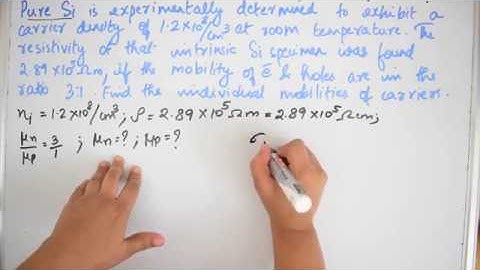 Pure Si is experimentally determined to exhibit a
carrier density of 1.2×10⁸/cm³ at room temperature. The
resistivity of that intrinsic Si specimen was found
2.89×10⁵Ωm, if the mobility of ē & holes are in the
ratio 3:1. Find the individual mobilities of carriers.
nᵢ = 1.2×10⁸/cm³; ρ = 2.89×10⁵Ωm = 2.89×10⁵Ωcm;
μn/μp = 3/1 ; μn=? ; μp=? σ